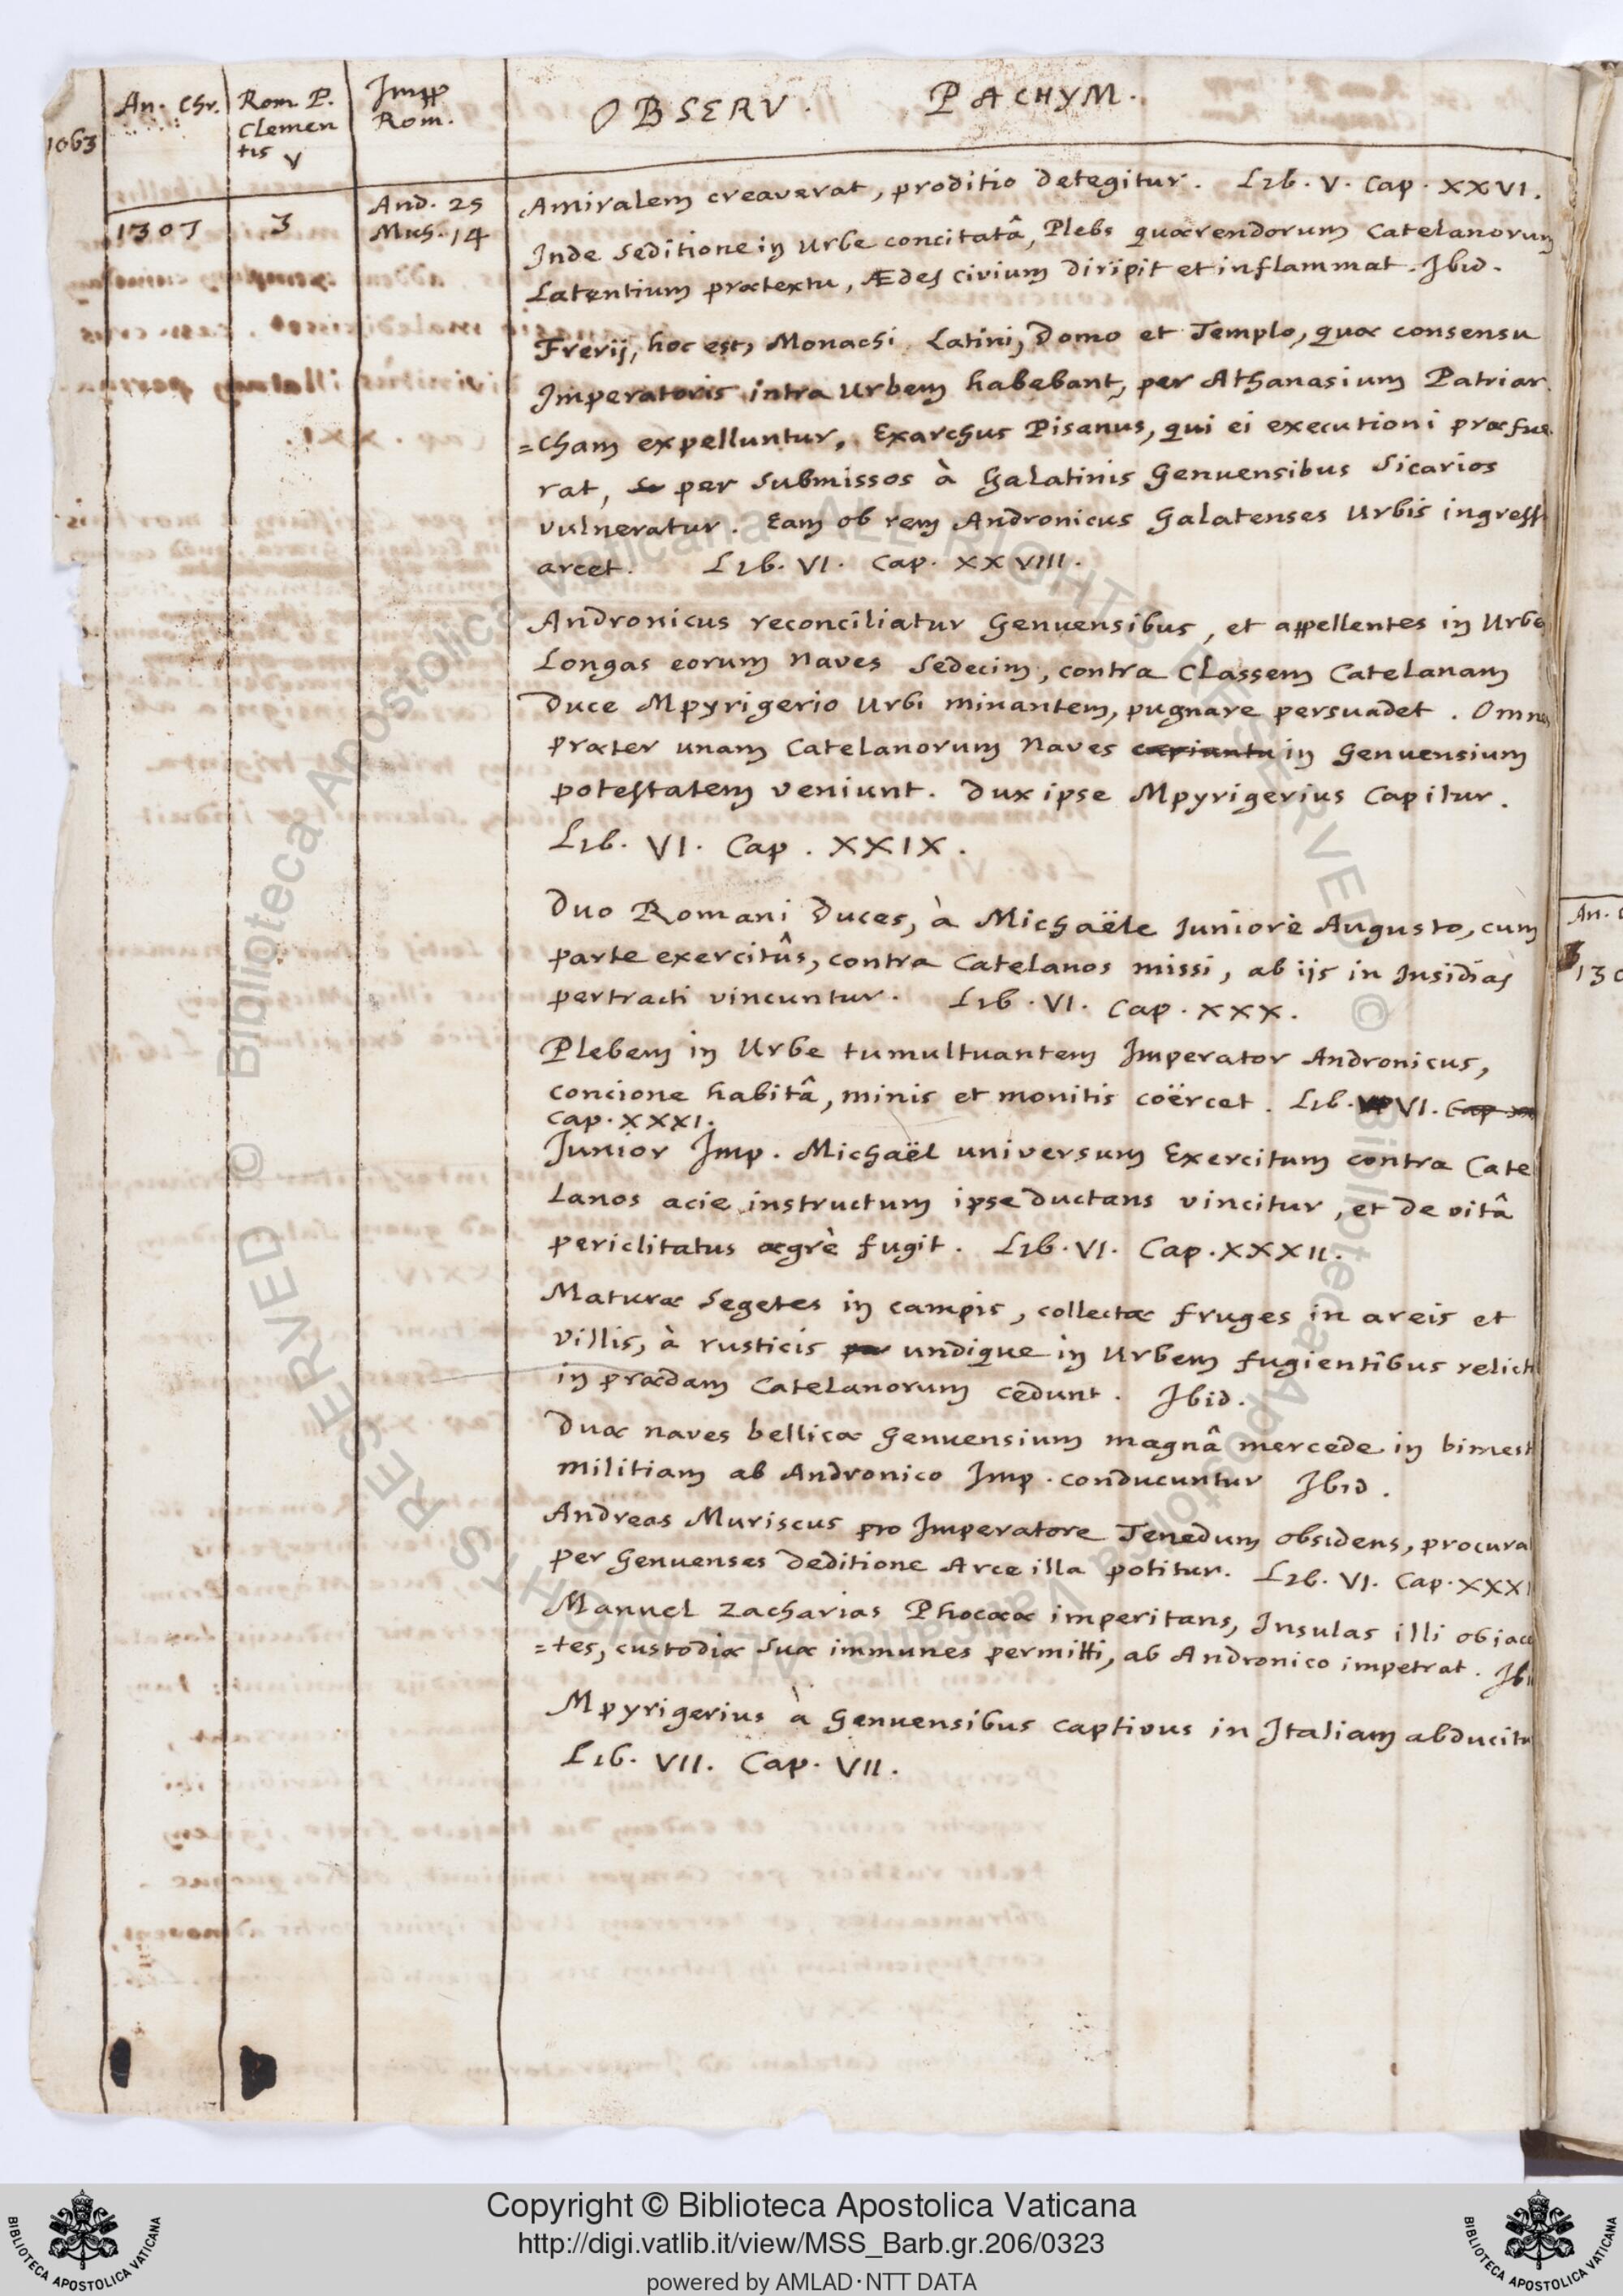 1063
An. Chr. Rom P. Clemen tis V Impp Rom. OBSERV. PACHYM.
1307 3 And. 25 Mich. 14
Amiralem creaverat, proditio detegitur. Lib. V. Cap. XXVI.
Inde Seditione in Urbe concitatâ, Plebs quærendorum Catelanorum
Latentium prætextu, Ædes Civium diripit et inflammat. Ibid.
Frerij, hoc est, Monachi Latini, Domo et Templo, quæ consensu
Imperatoris intra Urbem habebant, per Athanasium Patriar
=cham expelluntur. Exarchus Pisanus, qui ei executioni præfue
rat, per submissos à Galatinis Genuensibus Sicarios
vulneratur. Eam ob rem Andronicus Galatenses Urbis ingress
arcet. Lib. VI. Cap. XXVIII.
Andronicus reconciliatur Genuensibus, et appellentes in Urbe
Longas eorum Naves Sedecim, contra Classem Catelanam
Duce Mpyrigerio Urbi minantem, pugnare persuadet. Omnes
præter unam Catelanorum Naves capiuntu in Genuensium
potestatem veniunt. Dux ipse Mpyrigerius Capitur.
Lib. VI. Cap. XXIX.
Duo Romani Duces, à Michaële Juniore Augusto, cum
parte exercitûs, contra Catelanos missi, ab ijs in Insidias
pertracti vincuntur. Lib. VI. Cap. XXX.
Plebem in Urbe tumultuantem Imperator Andronicus,
concione habitâ, minis et monitis coërcet. Lib. VI. Cap
Cap. XXXI.
Junior Imp. Michaël universum Exercitum contra Cate
Lanos acie instructum ipse ductans vincitur, et de vitâ
periclitatus ægrè fugit. Lib. VI. Cap. XXXII.
Maturæ Segetes in campis, collectæ fruges in areis et
Villis, à rusticis undique in Urbem fugientibus relict
in prædam Catelanorum cedunt. Ibid.
Duæ naves bellicæ Genuensium magnâ mercede in bimest
militiam ab Andronico Imp. conducuntur Ibid.
Andreas Muriscus pro Imperatore Tenedum obsidens, procura
per Genuenses deditione Arce illa potitur. Lib. VI. Cap. XXXI
Manuel Zacharias Phocææ imperitans, Insulas illi objace
=tes, custodiæ suæ immunes permitti, ab Andronico impetrat. Ibi
Mpyrigerius à Genuensibus captivus in Italiam abducitu
Lib. VII. Cap. VII.
An. C
130
© Biblioteca Apostolica Vaticana ALL RIGHTS RESERVED © Biblioteca Apostolica Vaticana ALL RIGHTS RESERVED
Copyright © Biblioteca Apostolica Vaticana
http://digi.vatlib.it/view/MSS_Barb.gr.206/0323
powered by AMLAD·NTT DATA
BIBLIOTECA APOSTOLICA VATICANA
BIBLIOTECA APOSTOLICA VATICANA